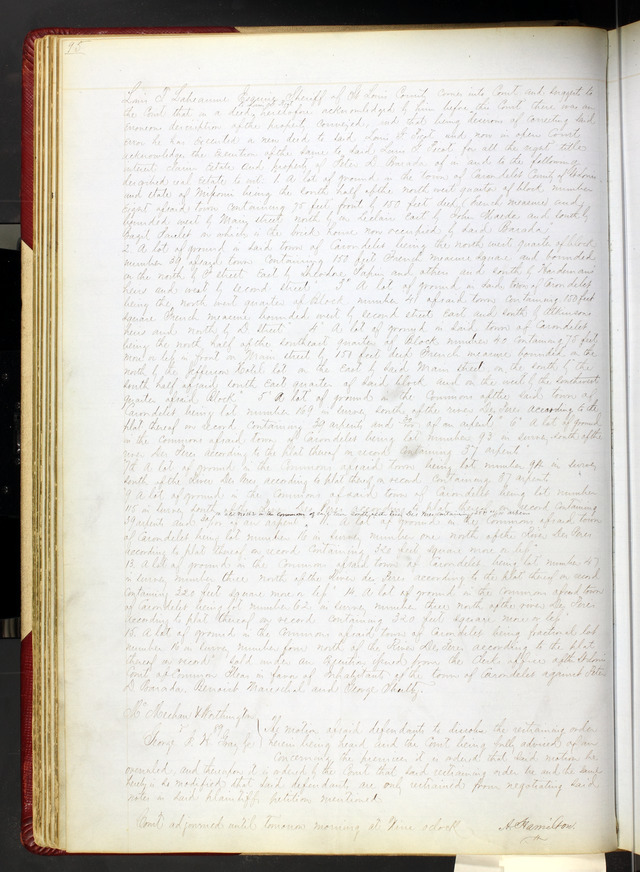 15
Louis T Labeaume Esquire Sheriff of St Louis County comes into Court and suggest to
the Court that in a deed heretofore acknowledged by him before the Court there was an
erroneous description of the property conveyed, and that being desirous of correcting said
error he has executed a new deed to said Louis Picot and now in open Court
acknowledges the execution of the same to said Louis Picot for all the right title
interest claim estate and property of Peter D Barada of in and to the following
described real estate to wit: 1 A lot of ground in the town of Carondelet County of St Louis
and State of Missouri being the south half of the north west quarter of block number
eight aforesaid town containing 75 feet front by 150 feet deep french measures and
bounded west by Main street north by Leclair East by John and south by
in which is the brick house now occupied by said Barada"
2 A lot of ground in said town of Carondelet being the north west quarter of block
number 39 aforesaid town containing 150 feet French measure square and bounded
on the north by F street East by Theodore Papin and others and south by
heirs and west by second street" 3d A lot of ground in said town of Carondelet
being the north west quarter of Block number 41 aforesaid town containing 150 feet
square French measure bounded west by second street East and south by Atkinsons
heirs and north by D street" 4th A lot of ground in said town of Carondelet
being the north half of the southeast quarter of Block number 40 containing 75 feet
more or less in front on Main street by 150 feet deep French measure bounded on the
north by the Jefferson lot on the East by said Main street on the south by the
south half of said south East quarter of said block and on the west by the southwest
quarter of said Block" 5th A lot of ground in the Commons of the said town of
Carondelet being lot number 169 in survey south of the river Des Peres according to the
plat thereof on record containing 39 arpents and of an arpent" 6th A lot of ground
in the commons aforesaid town of Carondelet being lot number 93 in survey south of the
river Des Peres according to the plat thereof on record containing 37 arpents"
7th A lot of ground in the Commons aforesaid town being lot number 94 in survey
south of the River Des Peres according to plat thereof on record containing 37 arpents
9 A lot of ground in the Commons of said town of Carondelet being lot number
115 in survey south containing
39 arpents and of an arpent" 11 A lot of ground in the Commons aforesaid town
of Carondelet being lot number 16 in survey number one north of the River Des Peres
according to plat thereof on record containing 320 feet square more or less"
13 A lot of ground in the Commons aforesaid town of Carondelet being lot number 47
in survey number three north of the River des Peres according to the plat thereof on record
containing 220 feet square more or less" 14 A lot of ground in the Commons aforesaid town
of Carondelet being lot number 62 in survey number three north of the river Des Peres
according to plat thereof on record containing 320 feet square more or less"
15 A lot of ground in the Commons aforesaid town of Carondelet being fractional lot
number 16 in survey number four north of the River Des Peres according to the plat
thereof on record" Sold under an Execution issued from the Clerks office of the St Louis
Court of Common Pleas in favor of Inhabitants of the town of Carondelet against Peter
D Barada Bernard Mareschal and George

Mc Meechan & Worthington
vs
George F R
The motion of said defendants to dissolve the restraining order
herein being heard and the Court being fully advised of and
concerning the premises it is ordered that said motion be
overruled, and thereupon it is ordered by the Court that said restraining order be and the same
hereby is so modified that said defendants are only restrained from negotiating said
notes in said plaintiffs petition mentioned

Court adjourned until tomorrow morning at Nine oclock
A. Hamilton